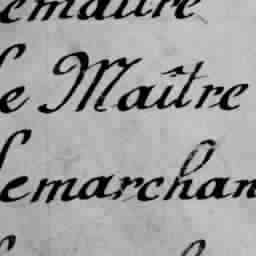 emaître
le Maître
lemarchan